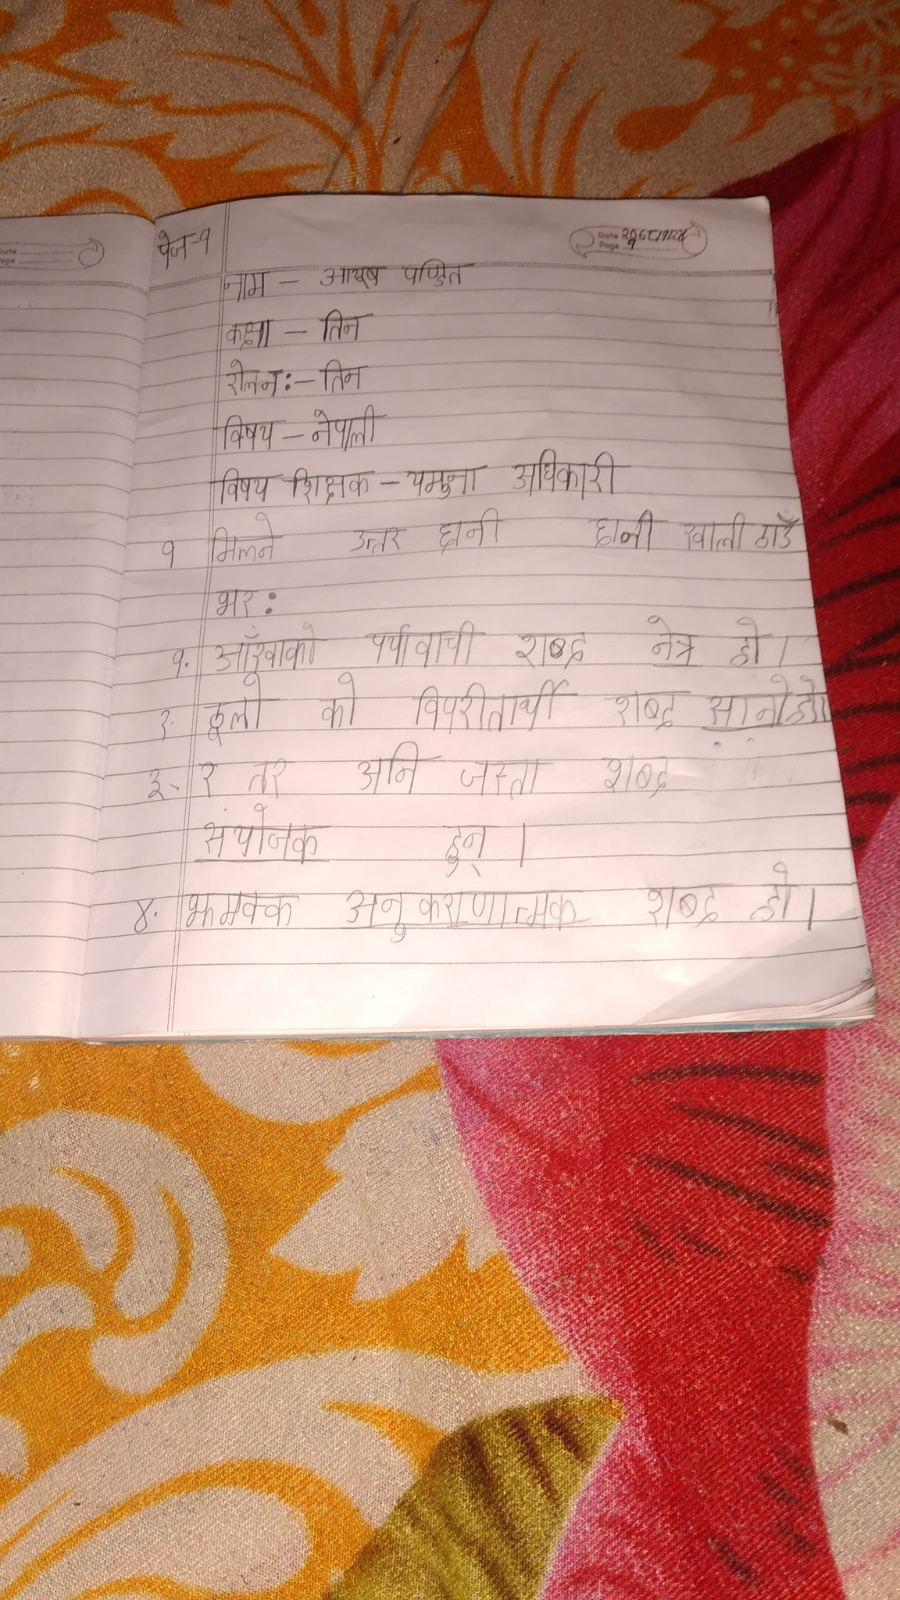 पेज-१
Date
Page १
नाम – आयूष पण्डित
कक्षा – तिन
रोलनः– तिन
विषय – नेपाली
विषय शिक्षक – यमुना अधिकारी
१ मिलने उत्तर छानी छानी खाली ठाउँ
भर :
१. आँखाको पर्यावाची शब्द नेत्र हो।
२. ठूलो को विपरीतार्थी शब्द सानो हो।
३. र तर अनि जस्ता शब्द
संयोजक हुन् ।
४. झमक्क अनुकराणात्मक शब्द हो।
Date
Page